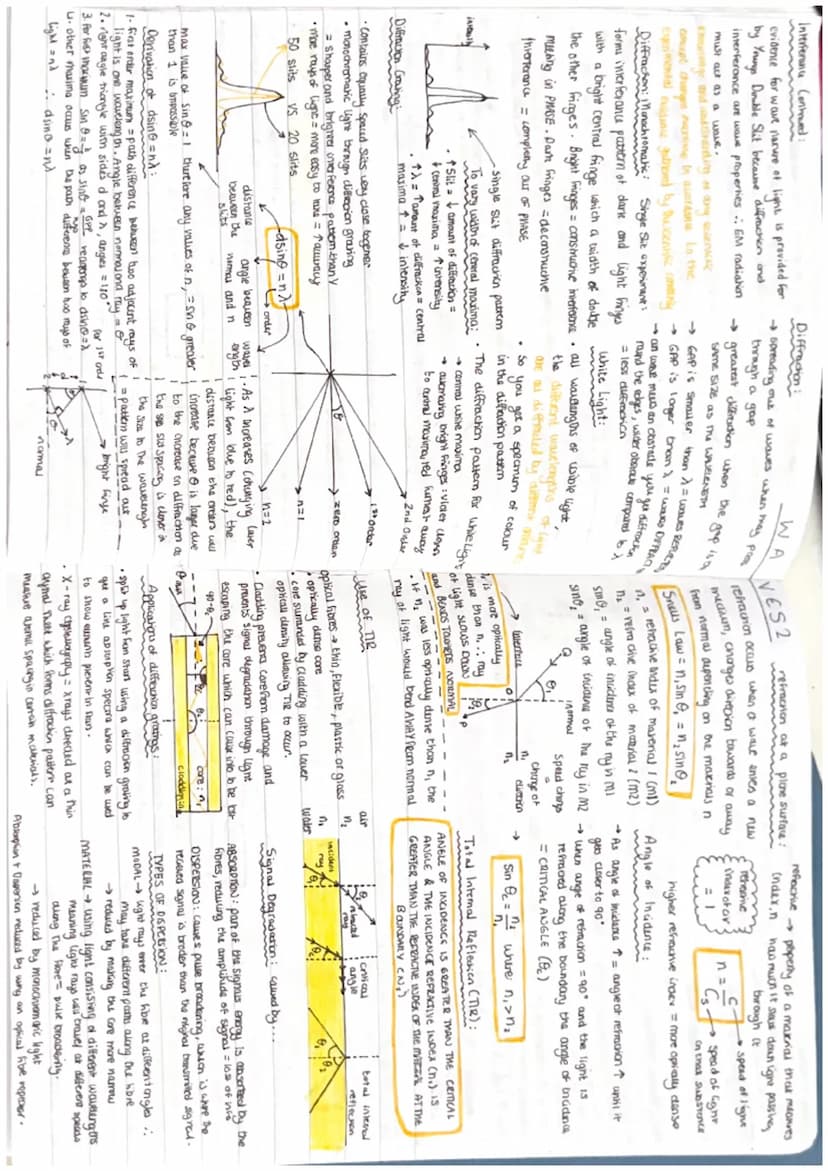 WAVES 2
Interference Continued:
evidence for wave nature of light is provided for
by Youngs Double Slit because diffraction and
interference are wave properties ∴ EM radiation
must act as a wave.
knowledge and understanding of any scientific
concept changes overtime in accordance to the
experimental evidence gathered by the scientific community
Diffraction: Monochromatic: Single Slit experiment:
forms interference pattern of dark and light fringes
with a bright central fringe which a width of double
the other fringes. Bright fringes = constructive interference
meeting in PHASE. Dark fringes = deconstructive
interference = completely out of PHASE
intensity
single slit diffraction pattern
To vary width of central maxima:
• ↑ slit = ↓ amount of diffraction =
↓ central maxima = ↑ intensity
• ↑ λ = ↑ amount of diffraction = central
maxima ↑ = ↓ intensity
Diffraction Grating:
• contains equally spaced slits very close together
• monochromatic light through diffraction grating
= sharper and brighter interference pattern than Y
• more rays of light = more easy to take = ↑ accuracy
50 slits VS 20 slits
dsinθ = nλ
order
distance between the slits
angle between the normal and n
wavelength
max value of sinθ = 1 therefore any values of n, = sinθ greater
than 1 is impossible
Derivation of dsinθ = nλ:
1. first order maximum = path difference between two adjacent rays of
light is one wavelength. Angle between normal and ray = θ
2. right angle triangle with sides d and λ, angles = 1,90°
3. for first maximum sinθ = λ/d as sinθ = opp/hyp rearrange to dsinθ = λ
4. other maxima occurs when the path difference between two rays of
light = nλ ∴ dsinθ = nλ
for 1st order
bright fringe
normal
Diffraction:
→ spreading out of waves when they pass
through a gap
→ greatest diffraction when the gap is a
same size as the wavelength
→ GAP is smaller than λ = waves REFLECTED
→ GAP is larger than λ = waves DIFFRACT
→ as wave meets an obstacle you get diffraction
round the edges, wider obstacle compared to λ
= less diffraction
White Light:
• all wavelengths of visible light,
the different wavelengths of light
are all diffracted by different amounts
• So you get a spectrum of colour
in the diffraction pattern
• The diffraction pattern for white light:
→ central white maxima
→ alternating bright fringes: violet closest
to central maxima, red furthest away
2nd order
1st order
zero order
n=1
n=2
θ
• As λ increases (changing laser
light from blue to red), the
distance between the orders will
increase because θ is larger due
to the increase in diffraction as
the slit spacing is closer in
the size to the wavelength
= pattern will spread out
refraction at a plane surface:
refraction occurs when a wave enters a new
medium, changes direction towards or away
from normal depending on the materials n
Snells Law = n₁ sinθ₁ = n₂ sinθ₂
n₁ = refractive index of material 1 (m1)
n₂ = refractive index of material 2 (m2)
sinθ₁ = angle of incidence of the ray in M1
sinθ₂ = angle of incidence of the ray in M2
normal
Interface
Speed change
=
change of
direction
n₂ is more optically
dense than n₁ ∴ ray
of light SLOWS DOWN
and BENDS TOWARDS NORMAL
• if n₂ was less optically dense than n₁ the
ray of light would bend AWAY from normal
refractive index, n → property of a material that measures
how much it slows down light passing
through it
refractive
index of air
= 1
n = c/cs
speed of light
speed of light
in that substance
higher refractive index = more optically dense
Angle of Incidence:
→ As angle of incidence ↑ = angle of refraction ↑ until it
gets closer to 90°
→ when angle of refraction = 90° and the light is
refracted along the boundary the angle of incidence
= CRITICAL ANGLE (θc)
→ sin θc = n₂/n₁ where: n₁ > n₂
Total Internal Reflection (TIR):
ANGLE OF INCIDENCE IS GREATER THAN THE CRITICAL
ANGLE & THE INCIDENCE REFRACTIVE INDEX (n₁) IS
GREATER THAN THE REFRACTIVE INDEX OF THE MATERIAL AT THE
BOUNDARY (n₂)
air
n₂
n₁
water
incident
ray
refracted
ray
critical
angle
total internal
reflection
Use of TIR
optical fibres → thin, flexible, plastic or glass
• optically dense core
• core surrounded by cladding with a lower
optical density allowing TIR to occur.
• Cladding prevents core from damage and
prevents signal degradation through light
escaping the core which can cause info to be lost
core: n₁
cladding: n₂
Signal Degradation: caused by...
ABSORPTION: part of the signals energy is absorbed by the
fibres, reducing the amplitude of signal = loss of info
DISPERSION: causes pulse broadening, which is where the
received signal is broader than the original transmitted signal.
TYPES OF DISPERSION:
MODAL → light rays enter the fibre at different angles ∴
may take different paths along the fibre
→ reduced by making the core more narrow
MATERIAL → using light consisting of different wavelengths
meaning light rays will travel at different speeds
along the fibre = pulse broadening.
→ reduced by monochromatic light
Absorption & Dispersion reduced by using an optical fibre repeater.
Applications of diffraction gratings:
• split up light from stars using a diffraction grating to
get a line absorption spectra which can be used
to show elements present in stars.
• X-ray crystallography = x rays directed at a thin
crystal sheet which forms diffraction pattern can
measure atomic spacing in certain materials.